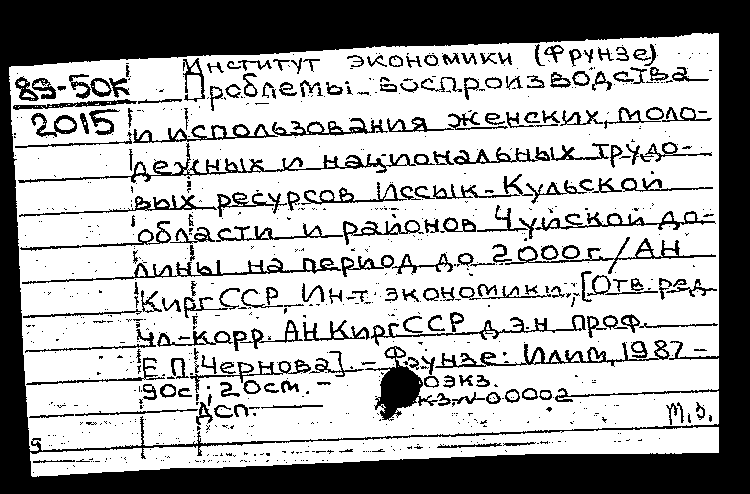 89-50К
2015
Институт экономики (Фрунзе)
Проблемы воспроизводства
и использования женских, моло-
дежных и национальных трудо-
вых ресурсов Иссык-Кульской
области и районов Чуйской до-
лины на период до 2000г. / АН
КиргССР, Ин-т экономики; [Отв. ред.
чл.-корр. АН КиргССР д.э.н. проф.
Е.П. Чернова]. - Фрунзе: Илим, 1987 -
90с., 20см. -
ДСП.
№ 00002
т.э.
9